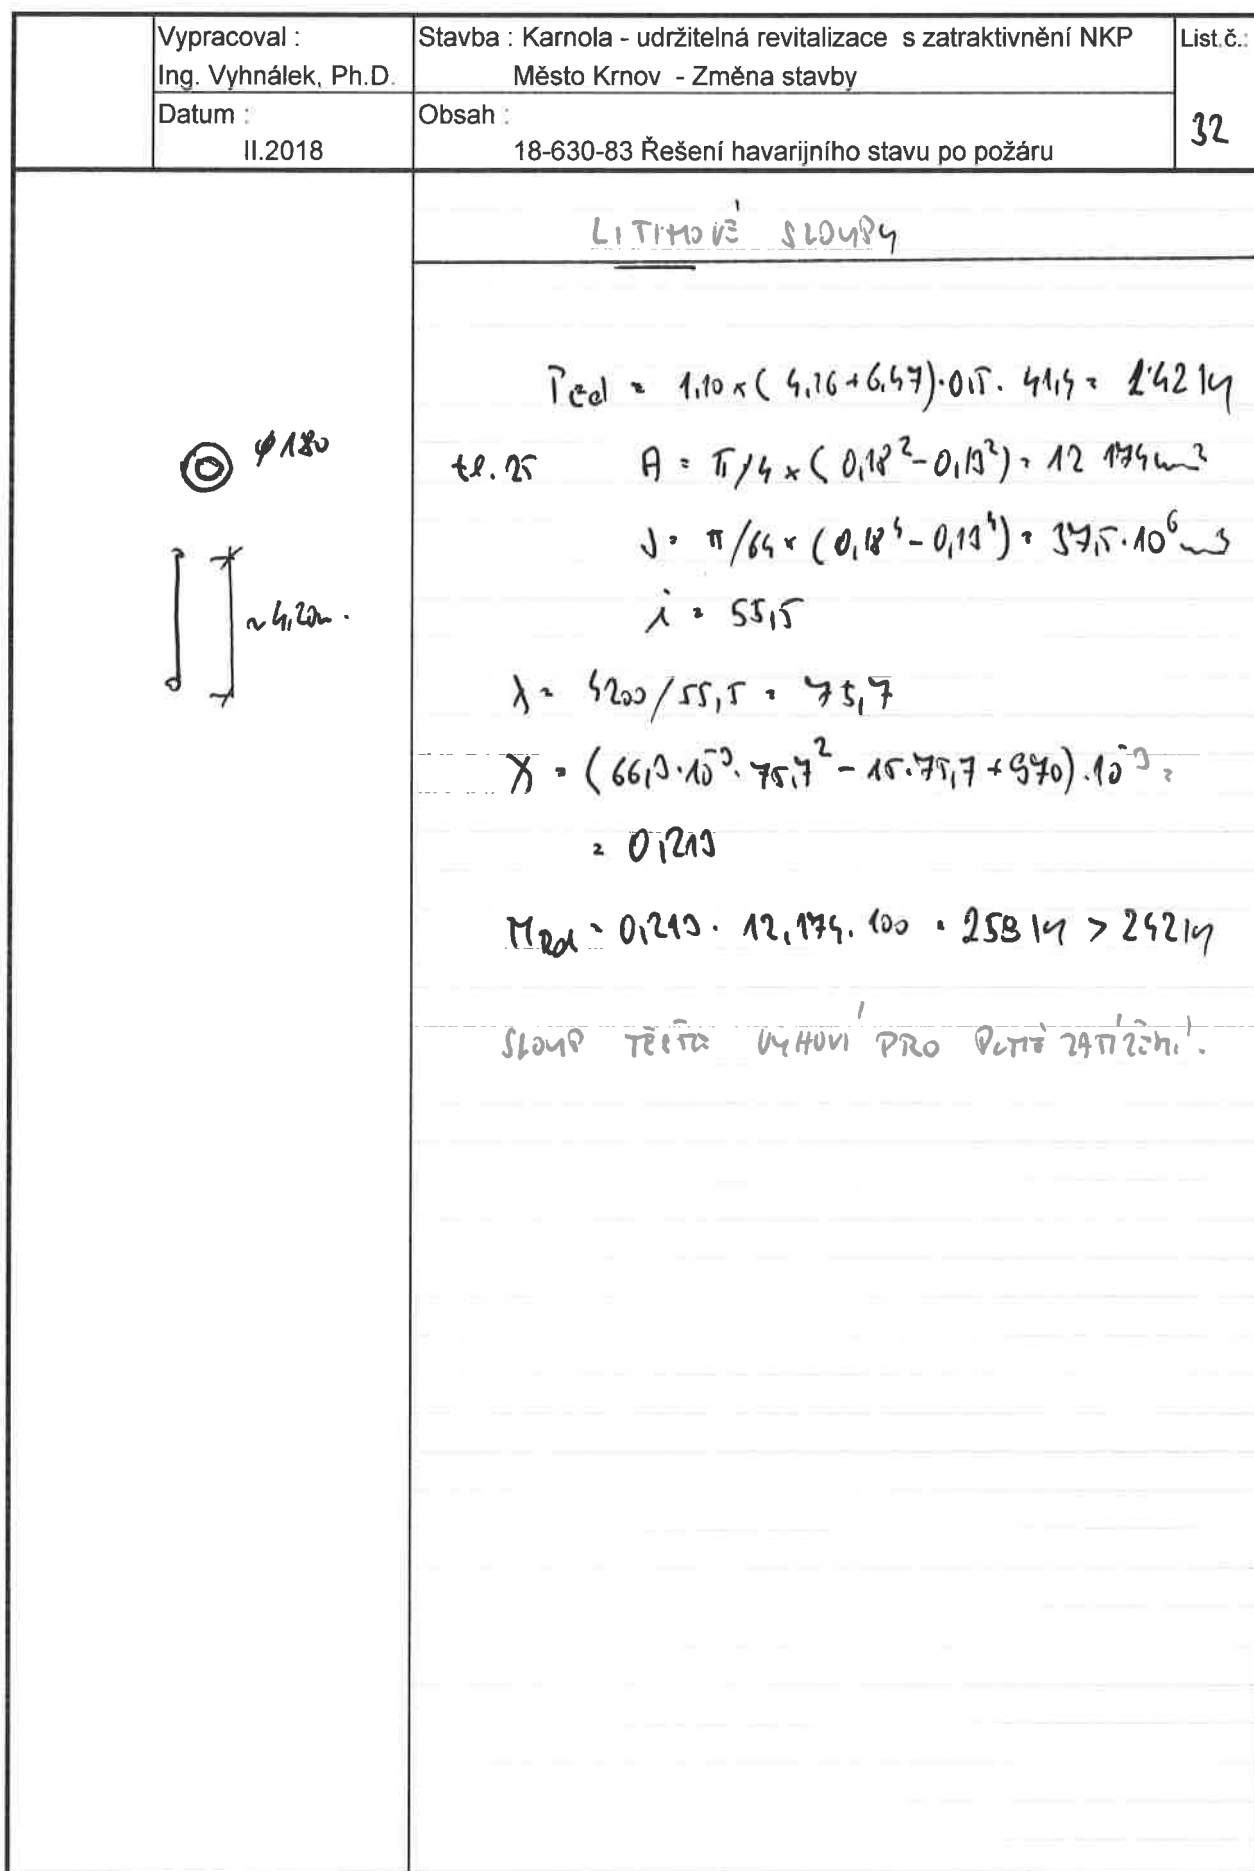 Vypracoval :
Ing. Vyhnálek, Ph.D.
Stavba : Karnola - udržitelná revitalizace s zatraktivnění NKP
Město Krnov - Změna stavby
List.č.:
32
Datum :
II.2018
Obsah :
18-630-83 Řešení havarijního stavu po požáru
LITINOVÉ SLOUPY
= 1,10 × ( 4,26 + 6,47 ) · 0,5 · 41,4 = 242 kN
φ 180
tl. 25
A = π/4 × ( 0,18² - 0,13² ) = 12 174 mm²
J = π/64 × ( 0,18⁴ - 0,13⁴ ) = 37,5 · 10⁶ mm⁴
i = 55,5
~ 4,20m.
λ = 4200 / 55,5 = 75,7
χ = ( 66,3 · 10⁻³ · 75,7² - 15 · 75,7 + 970 ) · 10⁻³ =
= 0,213
NRd = 0,213 · 12,174 · 100 = 259 kN > 242 kN
SLOUP TĚSNĚ VYHOVÍ PRO ZATÍŽENÍ.